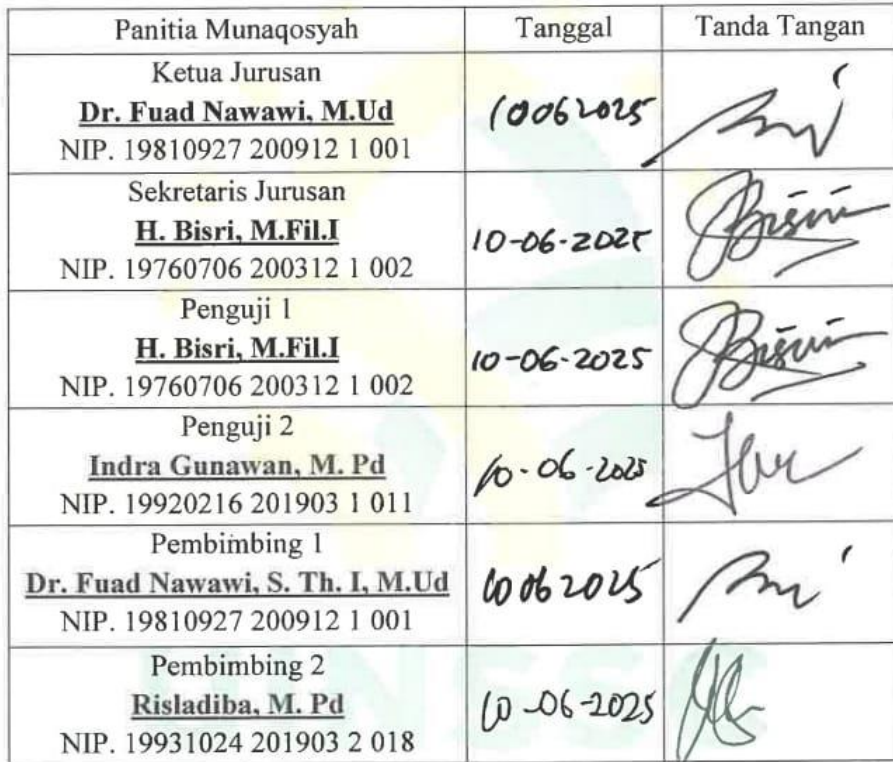 Panitia Munaqosyah Tanggal Tanda Tangan
Ketua Jurusan
Dr. Fuad Nawawi, M.Ud
NIP. 19810927 200912 1 001
10062025
Sekretaris Jurusan
H. Bisri, M.Fil.I
NIP. 19760706 200312 1 002
10-06-2025
Bisri
Penguji 1
H. Bisri, M.Fil.I
NIP. 19760706 200312 1 002
10-06-2025
Bisri
Penguji 2
Indra Gunawan, M. Pd
NIP. 19920216 201903 1 011
10-06-2025
Pembimbing 1
Dr. Fuad Nawawi, S. Th. I, M.Ud
NIP. 19810927 200912 1 001
10062025
Pembimbing 2
Risladiba, M. Pd
NIP. 19931024 201903 2 018
10-06-2025